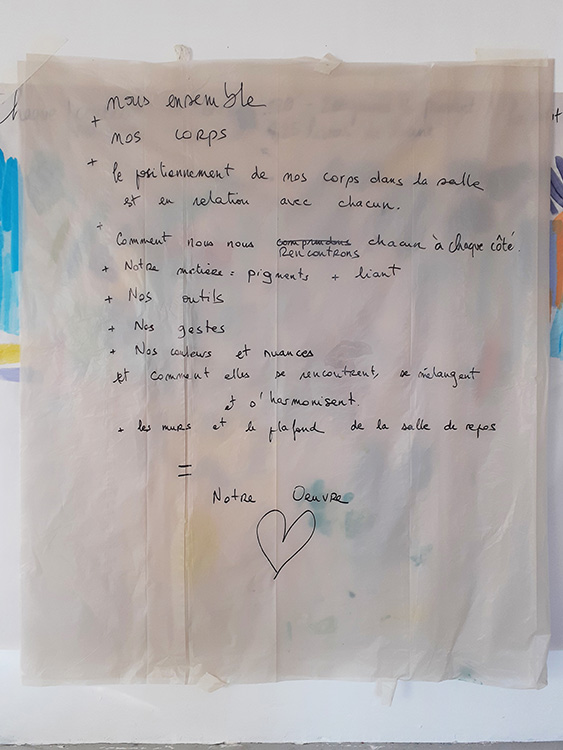 nous ensemble
+
nos corps
+ le positionnement de nos corps dans la salle
est en relation avec chacun.
+ Comment nous nous comprendons chacun à chaque côté.
Rencontrons
+ Notre matière = pigments + liant
+ Nos outils
+ Nos gestes
+ Nos couleurs et nuances
et comment elles se rencontrent, se mélangent
et s'harmonisent.
+ les murs et le plafond de la salle de repos
=
Notre Oeuvre